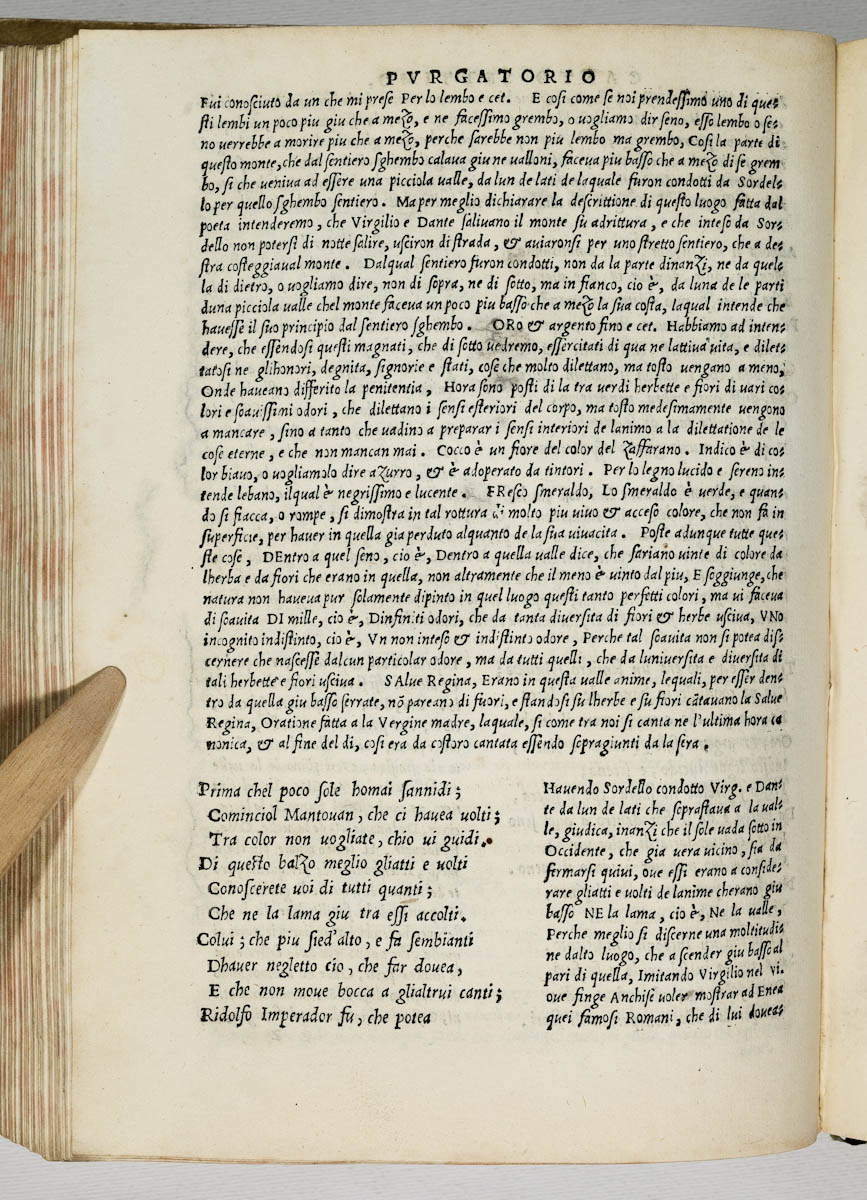 PVRGATORIO
Fui conosciuto da un che mi prese Per lo lembo e cet. E cosi come se noi prendessimo uno di que=
sti lembi un poco piu giu che a mezo, e ne facessimo grembo, o uogliamo dir seno, esso lembo o se=
no uerrebbe a morire piu che a mezo, perche sarebbe non piu lembo ma grembo, Cosi la parte di
questo monte, che dal sentiero sghembo calaua giu ne ualloni, faceua piu basso che a mezo di se grem
bo, si che ueniua ad essere una picciola ualle, da lun de lati de laquale furon condotti da Sordel=
lo per quello sghembo sentiero. Ma per meglio dichiarare la descrittione di questo luogo fatta dal
poeta intenderemo, che Virgilio e Dante saliuano il monte su adrittura, e che inteso da Sor=
dello non potersi di notte salire, usciron di strada, & auiaronsi per uno stretto sentiero, che a de=
stra costeggiaual monte. Dalqual sentiero furon condotti, non da la parte dinanzi, ne da quel=
la di dietro, o uogliamo dire, non di sopra, ne di sotto, ma in fianco, cio è, da luna de le parti
duna picciola ualle chel monte faceua un poco piu basso che a mezo la sua costa, laqual intende che
hauesse il suo principio dal sentiero sghembo. ORo & argento fino e cet. Habbiamo ad inten=
dere, che essendosi questi magnati, che di sotto uedremo, essercitati di qua ne lattiua uita, e dilet=
tatosi ne glihonori, degnita, signorie e stati, cose che molto dilettano, ma tosto uengano a meno,
Onde haueano differito la penitentia, Hora sono posti di la tra uerdi herbette e fiori di uari co=
lori e soauissimi odori, che dilettano i sensi esteriori del corpo, ma tosto medesimamente uengono
a mancare, sino a tanto che uadino a preparar i sensi interiori de lanimo a la dilettatione de le
cose eterne, e che non mancan mai. Cocco è un fiore del color del zaffarano. Indico è di co=
lor biauo, o uogliamolo dire azurro, & è adoperato da tintori. Per lo legno lucido e sereno in=
tende lebano, ilqual è negrissimo e lucente. FResco smeraldo, Lo smeraldo è uerde, e quan=
do si fiacca, o rompe, si dimostra in tal rottura di molto piu uiuo & acceso colore, che non fa in
superficie, per hauer in quella gia perduto alquanto de la sua uiuacita. Poste adunque tutte que=
ste cose, DEntro a quel seno, cio è, Dentro a quella ualle dice, che sariano uinte di colore da
lherba e da fiori che erano in quella, non altramente che il meno è uinto dal piu, E soggiunge, che
natura non haueua pur solamente dipinto in quel luogo questi tanto perfetti colori, ma ui faceua
di soauita DI mille, cio è, Dinfiniti odori, che da tanta diuersita di fiori & herbe usciua, VNo
incognito indistinto, cio è, Vn non inteso & indistinto odore, Perche tal soauita non si potea dis=
cernere che nascesse dalcun particolar odore, ma da tutti quelli, che da luniuersita e diuersita di
tali herbette e fiori usciua. SAlue Regina, Erano in questa ualle anime, lequali, per esser den=
tro da quella giu basso serrate, nõ pareano di fuori, e standosi su lherbe e su fiori cãtauano la Salue
Regina, Oratione fatta a la Vergine madre, laquale, si come tra noi si canta ne l'ultima hora ca
nonica, & al fine del di, cosi era da costoro cantata essendo sopragiunti da la sera.
Prima chel poco sole homai sannidi;
Cominciol Mantouan, che ci hauea uolti;
Tra color non uogliate, chio ui guidi.
Di questo balzo meglio gliatti e uolti
Conoscerete uoi di tutti quanti;
Che ne la lama giu tra essi accolti.
Colui; che piu sied'alto, e fa sembianti
Dhauer negletto cio, che far douea,
E che non moue bocca a glialtrui canti;
Ridolfo Imperador fu, che potea
Hauendo Sordello condotto Virg. e Dan=
te da lun de lati che soprastaua a la ual=
le, giudica, inanzi che il sole uada sotto in
Occidente, che gia uera uicino, sia da
fermarsi quiui, oue essi erano a conside=
rare gliatti e uolti de lanime cherano giu
basso NE la lama, cio è, Ne la ualle,
Perche meglio si discerne una moltitudi=
ne dalto luogo, che a scender giu basso al
pari di quella, Imitando Virgilio nel vi.
oue finge Anchise uoler mostrar ad Enea
quei famosi Romani, che di lui doueas